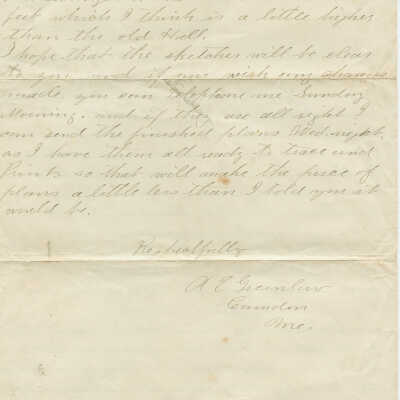 feet which I think is a little higher
than the old Hall.
I hope that the sketches will be clear
to you and if you wish any changes
made you can telephone me Sunday
Morning. and if they are all right I
can send the finished plans Wed. night.
as I have them all ready to trace and
Print. so that will make the price of
plans a little less than I told you it
would be.
Respectfully
Camden
Me.